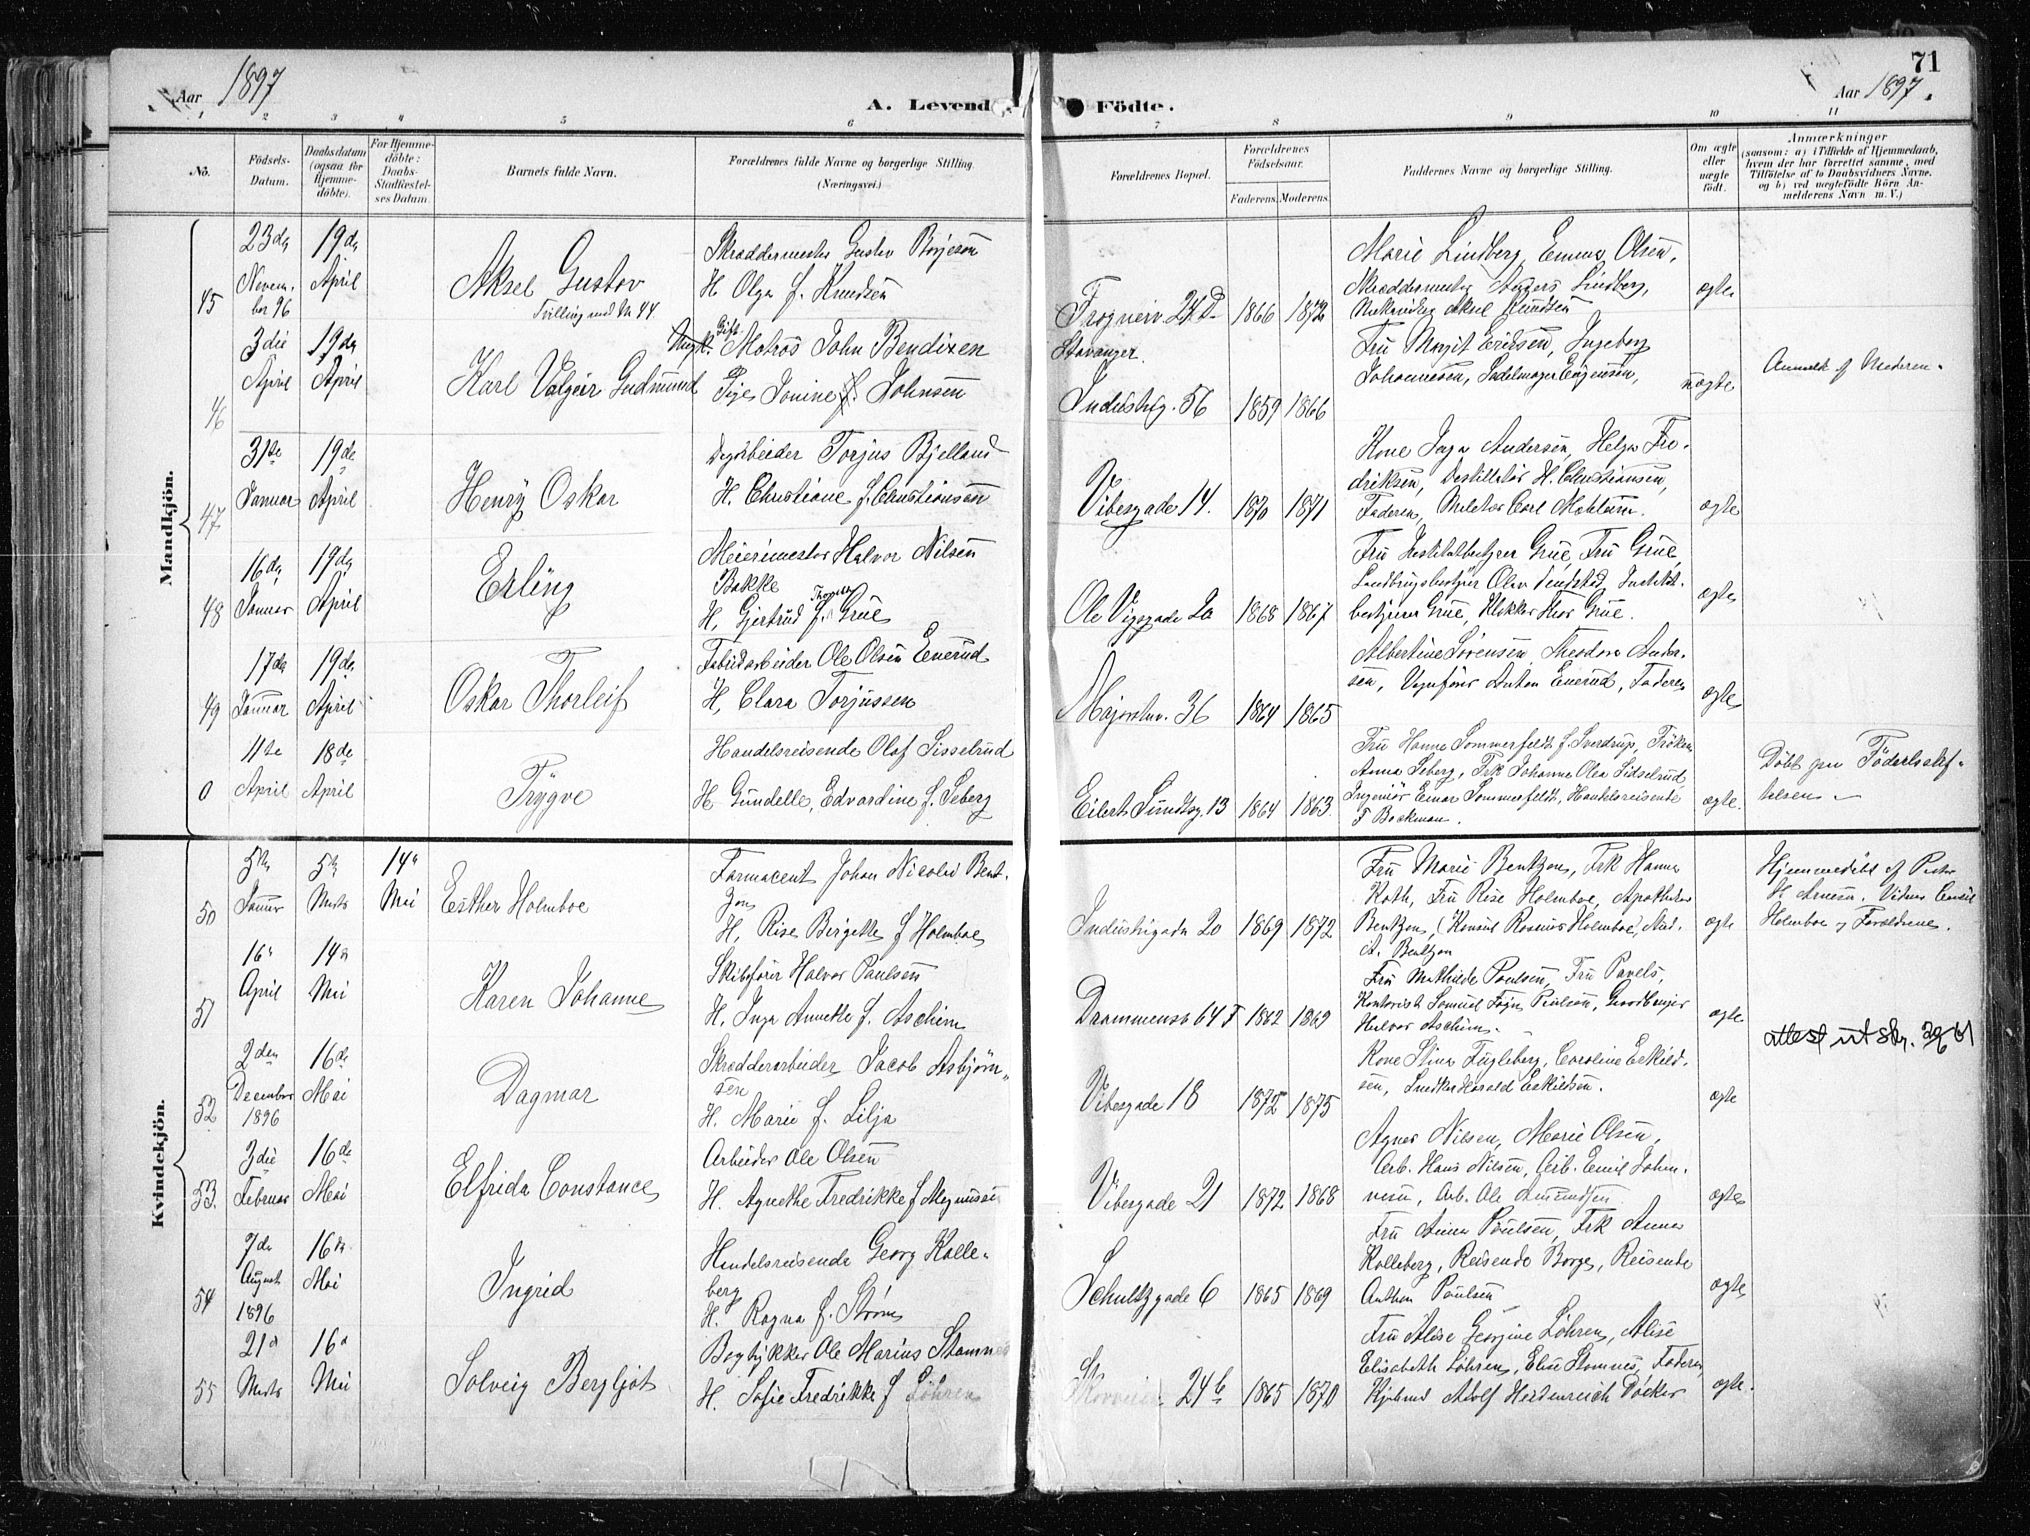 71
Aar 1897
A. Levende Födte.
Aar 1897.
1 2 3 4 5 6 7 8 9 10 11
No.
Födsels-Datum.
Daabsdatum (ogsaa for Hjemme-döbte).
For Hjemme-döbte: Daabs-Stadfæstel-ses Datum.
Barnets fulde Navn.
Forældrenes fulde Navne og borgerlige Stilling.
(Næringsvei.)
Forældrenes Bopæl.
Forældrenes Födselsaar.
Faderens. Moderens.
Faddernes Navne og borgerlige Stilling.
Om ægte eller uægte födt.
Anmærkninger
(saasom: a) i Tilfælde af Hjemmedaab, hvem der har forrettet samme, med Tilföielse af to Daabsvidners Navne, og b) ved uægtefödte Börn An-melderens Navn m. V.)
Mandkjön.
45 23de Novem-ber 96 19de April
Aksel Gustav
Tvilling med No 44
Skræddermester Gustav Börjeson
H. Olga f. Knudsen
Frognerv. 24 D 1866 1872
Marie Lindberg, Emma Olsen,
Skræddermester Anders Lindberg,
Aksel Knudsen
ægte
46 3die April 19de April
Karl Valgeir Gudmund
Gift. Matros John Bendixen
Pige Jonine f. Johnsen
Stavanger.
Industrig. 56 1859 1866
Fru Margit Eriksen, Ingeborg
Johannesen, Sadelmager Engensen,
uægte
Anmeldt af Moderen.
47 31te Januar 19de April
Henry Oskar
Dagarbeider Torjus Bjelland
H. Christiane f. Christiansen
Vibesgade 14. 1870 1871
Kone Inga Andersen, Helga Fre-
driksen, Destillatör H. Christiansen,
Faderen,
ægte
48 16de Januar 19de April
Erling
Meierimester Halvor Nilsen
Bakke
H. Gjertrud f. Grue
Ole Vigsgade 20 1868 1867
Fru Institutbestyrer Grue, Fru Grue,
Landbrugsbestyrer Olav Tendstad, Institut-
bestyrer Grue, Klokker Thor Grue.
ægte
49 17de Januar 19de April
Oskar Thorleif
Fabrikarbeider Ole Olsen Enerud
H. Clara Torjussen
Majorstuv. 36 1864 1865
Albertine Sörensen, Theodora Ander-
sen, Vognförer Anton Enerud, Faderen
ægte
0 11te April 18de April
Trygve
Handelsreisende Olaf Sisselrud
H. Gundelle, Edvardine f. Seberg
Eilert Sundtsg. 13 1864 1863.
Fru Hanna Sommerfeldt f. Sverdrup, Fröken
Anna Seberg, Frk Johanne Olea Sidselrud,
Ingeniör Einar Sommerfeldt, Handelsreisende
F Backman.
ægte.
Döbt paa Födselsstif-
telsen.
Kvindekjön.
50 5te Januar 5te Marts 14de Mai
Esther Holmboe
Farmaceut Johan Nicolai Bent-
zon
H. Rise Birgette f. Holmboe
Industrigaden 20 1869 1872
Fru Marie Bentzon, Frk Hanna
Koth, Fru Rise Holmboe, Apotheker
Bentzon, Konsul Rosenus Holmboe, Stud.
A. Bentzon
ægte
Hjemmedöbt af Pastor
H. Arnesen. Vidner Consul
Holmboe og Forældrene.
51 16de April 14de Mai
Karen Johanne
Skibsförer Halvor Paulsen
H. Inga Annette f. Aschim
Drammensv 64 F 1862 1869
Fru Mathilde Paulsen, Fru Pavels,
Kontorist Samuel Paulsen, Gaardbruger
Halvor Aschim.
ægte
attest utskr. 29/6 61
52 2den December 1896 16de Mai
Dagmar
Skrædderarbeider Jacob Asbjörn-
sen
H. Marie f. Lilja
Vibesgade 18 1872 1875
Kone Stina Fugleberg, Caroline Eskild-
sen, Snedker Harald Eskildsen.
ægte
53. 3die Februar 16de Mai
Elfrida Constance
Arbeider Ole Olsen
H. Agnethe Fredrikke f. Magnussen
Vibesgade 21 1872 1868
Agnes Nilsen, Marie Olsen,
Arb. Hans Nilsen, Arb. Emil Johan-
nesen, Arb. Ole Amundsen.
ægte
54 7de August 1896 16de Mai
Ingrid
Handelsreisende Georg Kolle-
berg
H. Ragna f. Ström
Schultzgade 6 1865 1869
Fru Anna Poulsen, Frk Anna
Kolleberg, Reisende Borge, Reisende
Anthon Poulsen
ægte
55 21de Marts 16de Mai
Solveig Bergljot
Bogtykker Ole Marius Stamnes
H. Sofie Fredrikke f. Löhren
24 b 1865 1870
Fru Alise Georgine Löhren, Alise
Elisabeth Löhren, Elise Stamnes, Faderen,
Adolf Heidenreich Döcker
ægte.